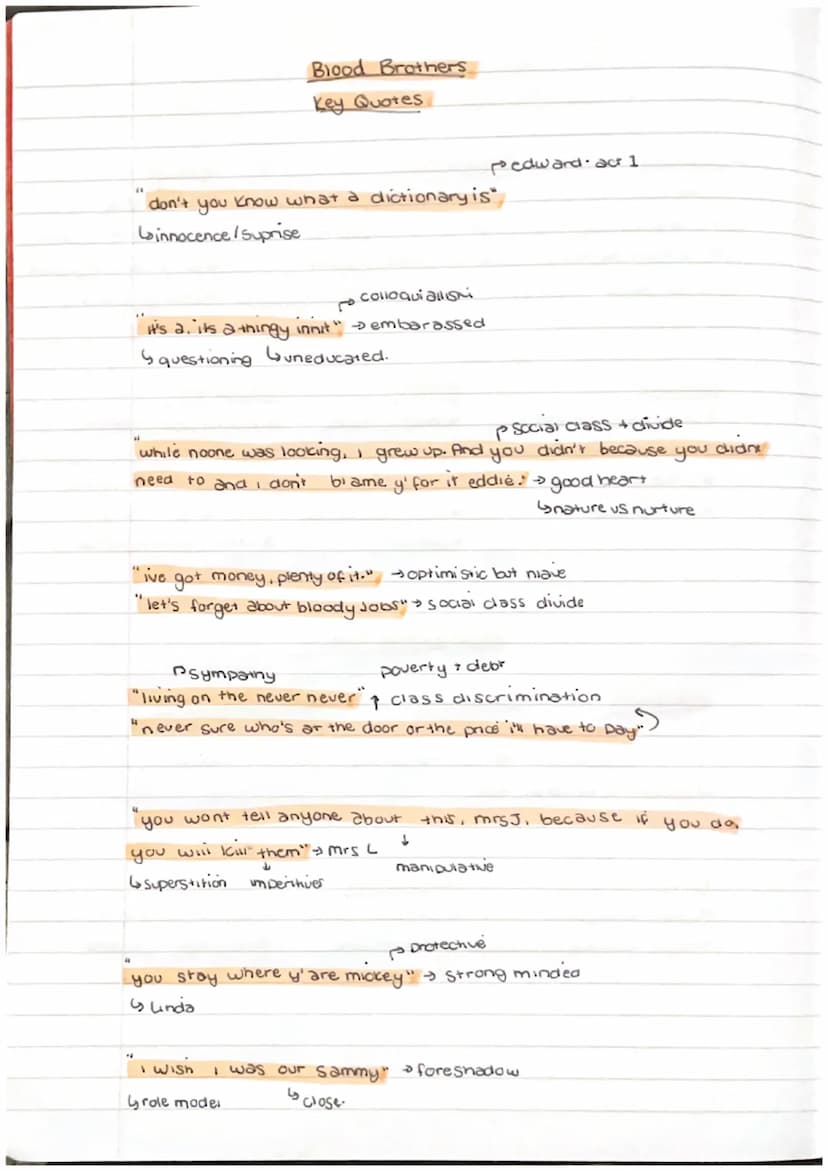 Blood Brothers
Key Quotes
↱edward. act 1
"don't you know what a dictionary is"
↳innocence/suprise
↱colloquialism
"it's a, its a thingy innit" → embarassed
↳questioning ↳uneducated.
↱social class + divide
"while noone was looking, i grew up. And you didn't because you didnt
need to and i don't blame y' for it eddie." → good heart
↳nature vs nurture
"ive got money, plenty of it." → optimistic but niave
"let's forget about bloody jobs" → social class divide
↱sympathy poverty + debt
"living on the never never" ↑ class discrimination
"never sure who's at the door or the price i'll have to pay"
"you wont tell anyone about this, mrsJ, because if you do,
you will kill them" → mrs L ↓
manipulative
↳superstition ↓ imperitives
↱protective
"you stay where y'are mickey" → strong minded
↳Linda
"i wish i was our sammy" → foreshadow
↳role model ↳close.